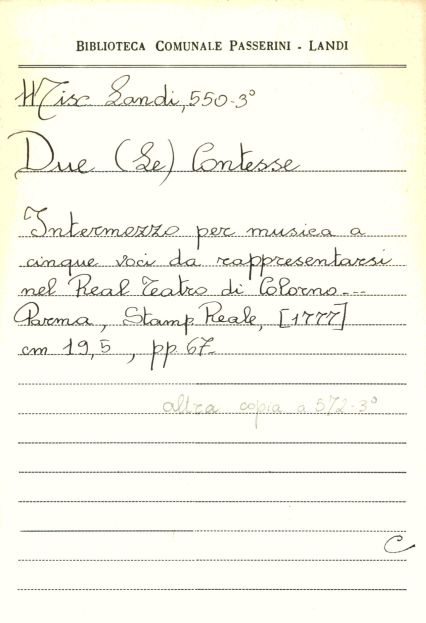 BIBLIOTECA COMUNALE PASSERINI - LANDI
Misc Landi, 550-3°
Due (Le) Contesse
Intermezzo per musica a
cinque voci da rappresentarsi
nel Real Teatro di Colorno---
Parma, Stamp. Reale, [1777]
cm 19,5, pp. 67-
altra copia a 572-3°
C